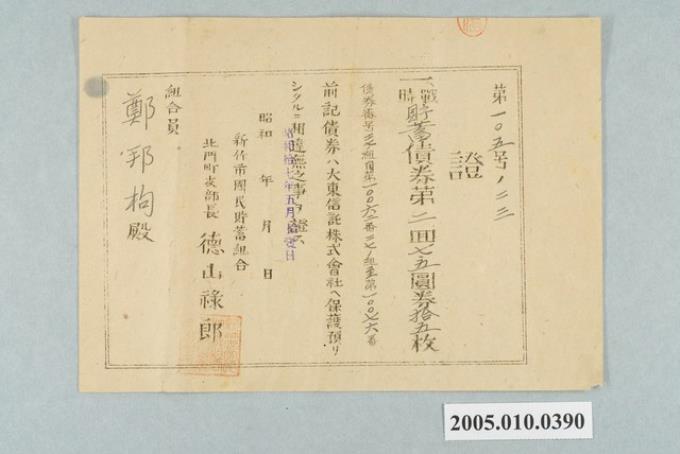 第一〇五号ノ二三
證
一、戰時貯蓄債券第二回七五圓券拾五枚
債券番号三七組自第一〇〇六二番三七ノ組至第一〇〇七六番
前記債券ハ大東信託株式會社ヘ保護預リ
シタルニ相違無之事ヲ證ス
昭和拾七年五月壹日
昭和 年 月 日
新竹市國民貯蓄組合
北門町支部長 德山祿郎
組合員
鄭邦枸殿
2005.010.0390